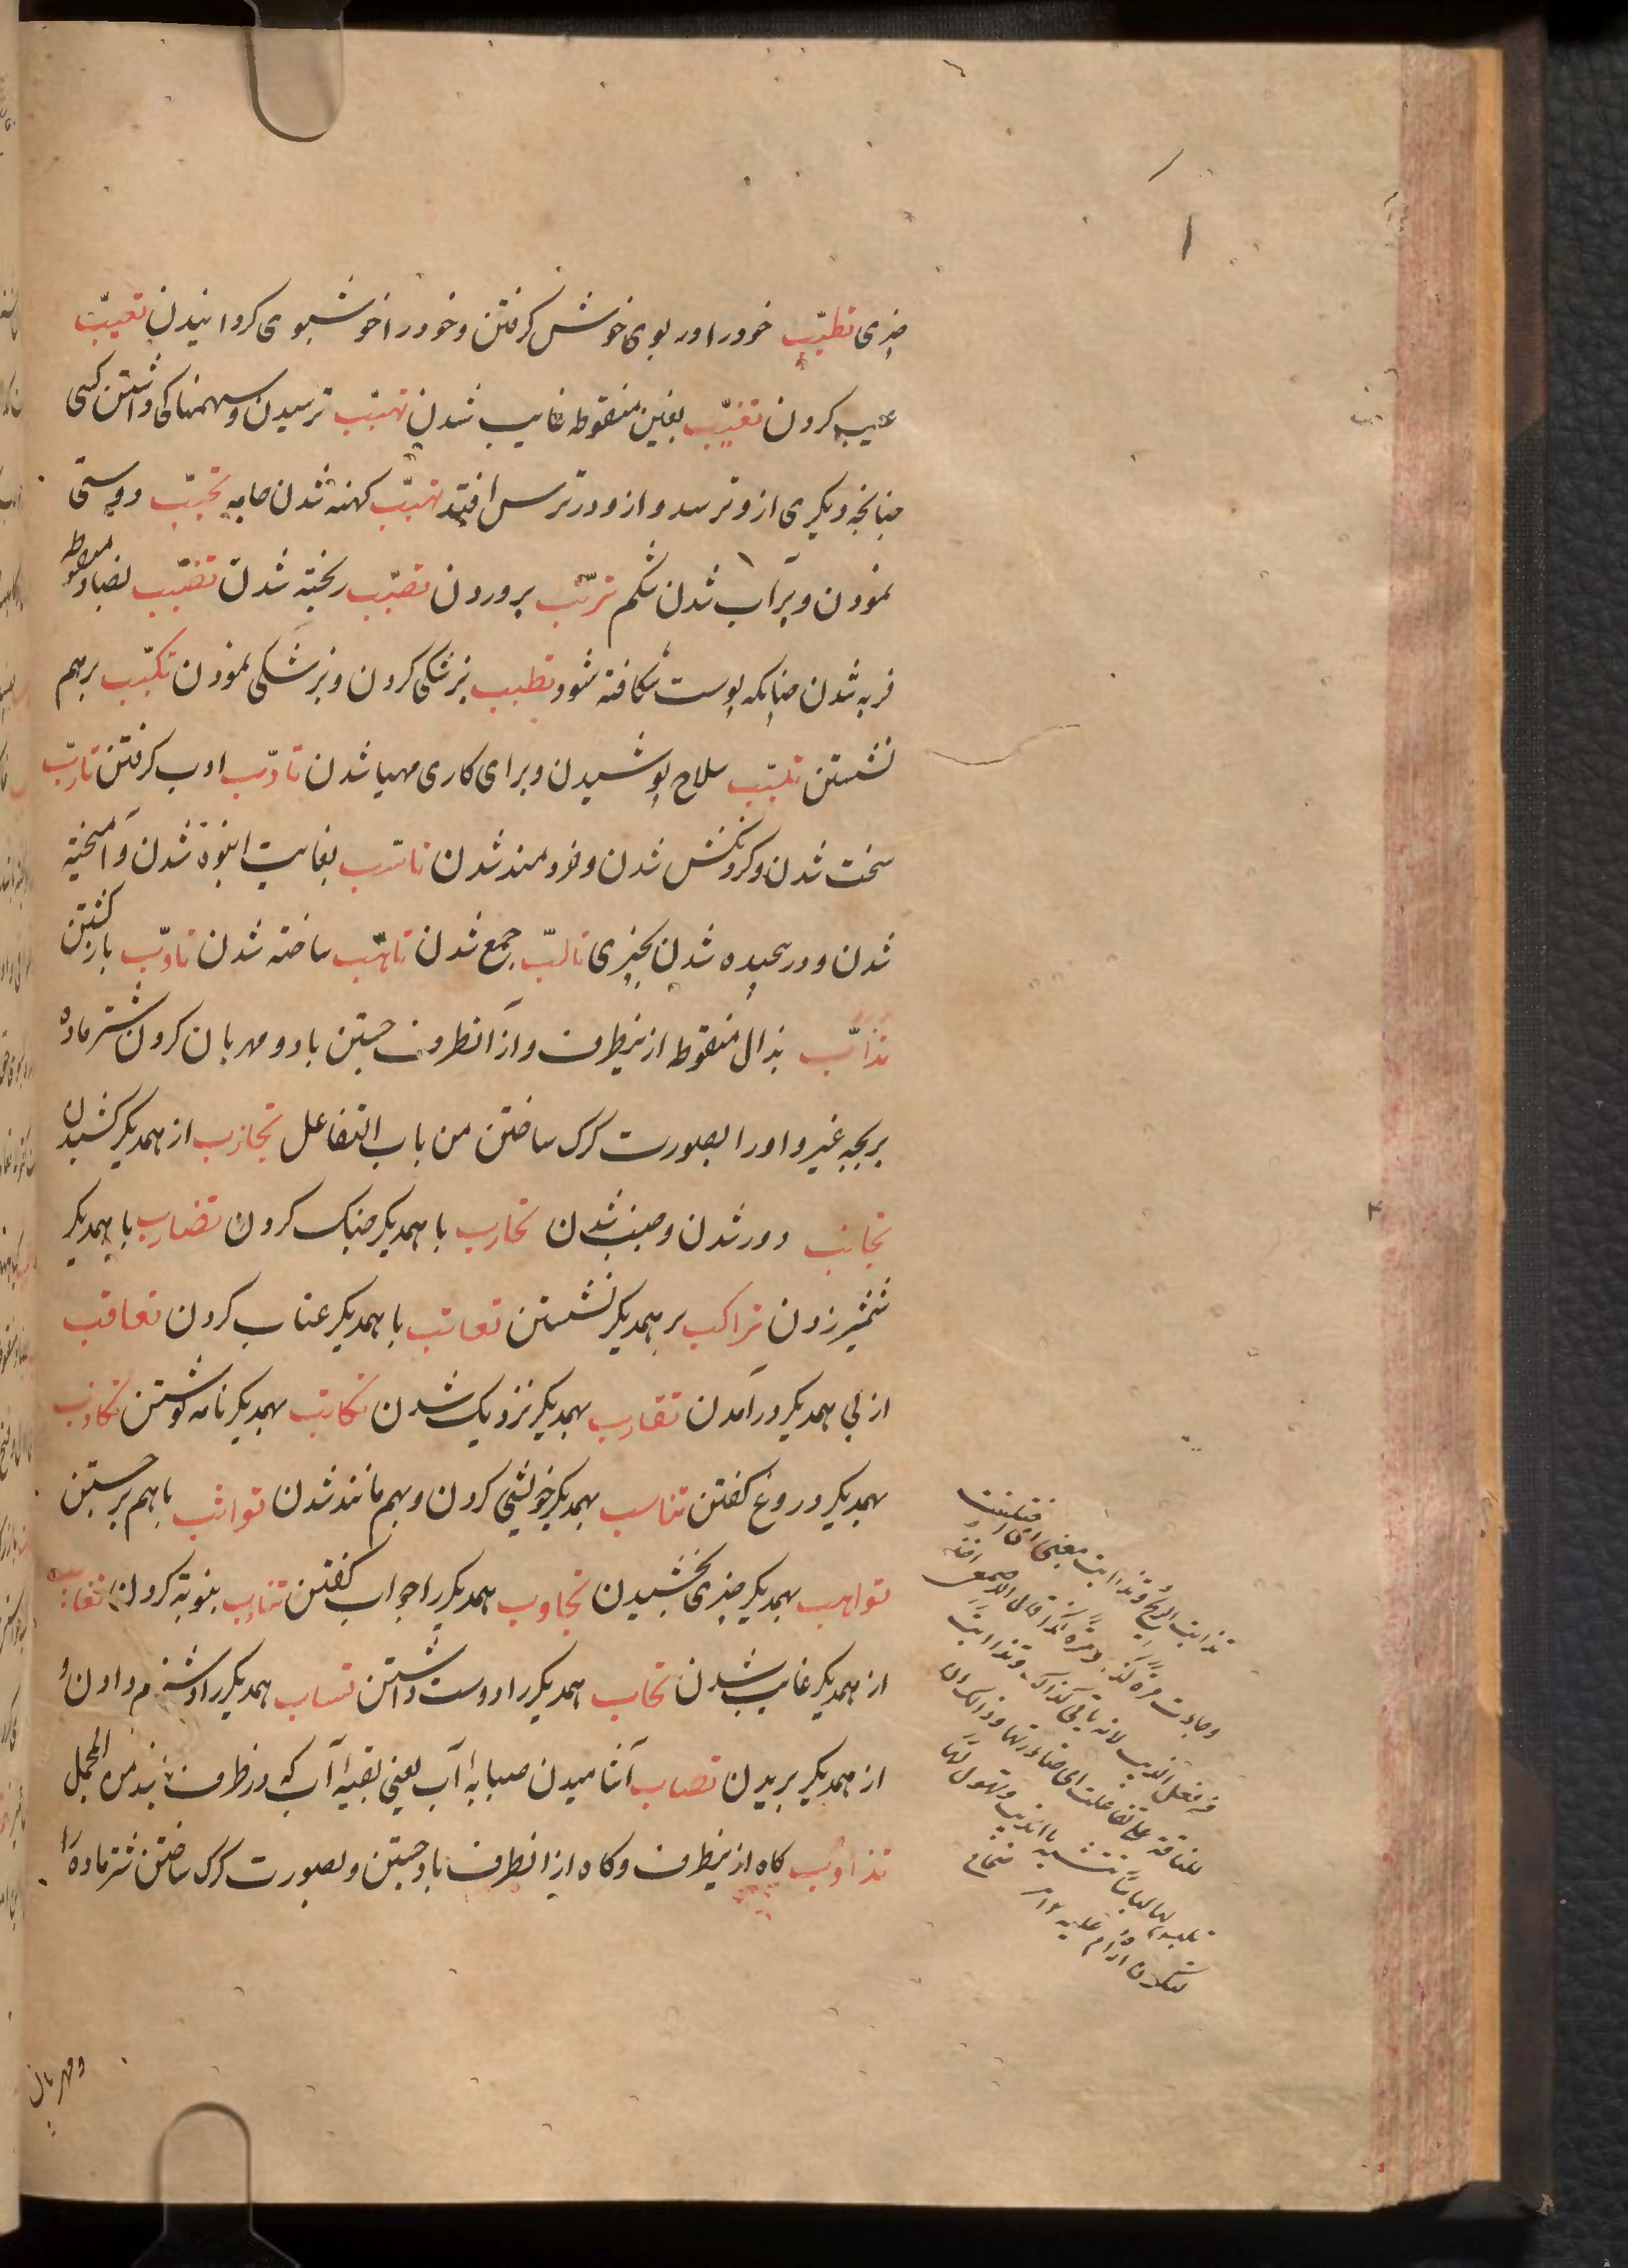 چیزی تطیّب خود را در بوی خوش کرفتن و خود را خوشبوی کردانیدن تعیّب
عیب کردن تغیّب بغین منقوطه غایب شدن تهیّب ترسیدن و سهمناکی داشتن کسی
چنانچه دیکری ازو ترسد و ازو در ترس افتد تهبّب کهنه شدن جامه تحبّب دوستی
نمودن و پرآب شدن شکم تربّب پروردن تصبّب ریخته شدن تضبّب بضاد منقوطه
فربه شدن چنانکه پوست شکافته شود تطبب پزشکی کردن و پزشکی نمودن تکبّب برهم
نشستن تلبّب سلاح پوشیدن و برای کاری مهیا شدن تادّب ادب کرفتن تارّب
سخت شدن و کردنکش شدن و خردمند شدن تاشب بغایت انبوه شدن و آمیخته
شدن و در پیچیده شدن بچیزی تالّب جمع شدن تاهّب ساخته شدن تاوّب باز کشتن
تذاّب بذال منقوطه ازینطرف و از آنطرف جستن باد و مهربان کردن شتر ماده
بر بچه غیر و او را بصورت کرک ساختن من باب التفاعل تجاذب از همدیکر کشیدن
تجانب دور شدن و جنب شدن تحارب با همدیکر جنک کردن تضارب با همدیکر
شمشیر زدن تراکب بر همدیکر نشستن تعاتب با همدیکر عتاب کردن تعاقب
از پی همدیکر در آمدن تقارب بهمدیکر نزدیک شدن تکاتب بهمدیکر نامه نوشتن تکاذب
بهمدیکر دروغ کفتن تناسب بهمدیکر خویشی کردن و بهم مانند شدن تواثب باهم برجستن
تواهب بهمدیکر چیزی بخشیدن تجاوب همدیکر را جواب کفتن تناوب بنوبة کردن تغایب
از همدیکر غایب شدن تحاب همدیکر را دوست داشتن تساب همدیکر را دشنام دادن و
از همدیکر بریدن تصاب آشامیدن صبابه آب یعنی بقیه آب که در ظرف من المجمل
تذاوب کاه ازینطرف و کاه از انطرف باد جستن و بصورت کرک ساختن شتر ماده را
تذابت الریح و تذاابت بمعنی ای
وجاءت مرة کذا ومرة کذا قال الاصمعی اخذ
من فعل الذیب لانه یاتی کذلک وتذاابت
للناقة علی تفاعلت ای
لها لباسا تتشبه بالذیب وتهول لها
لتکون ارأم علیه
ومهربان